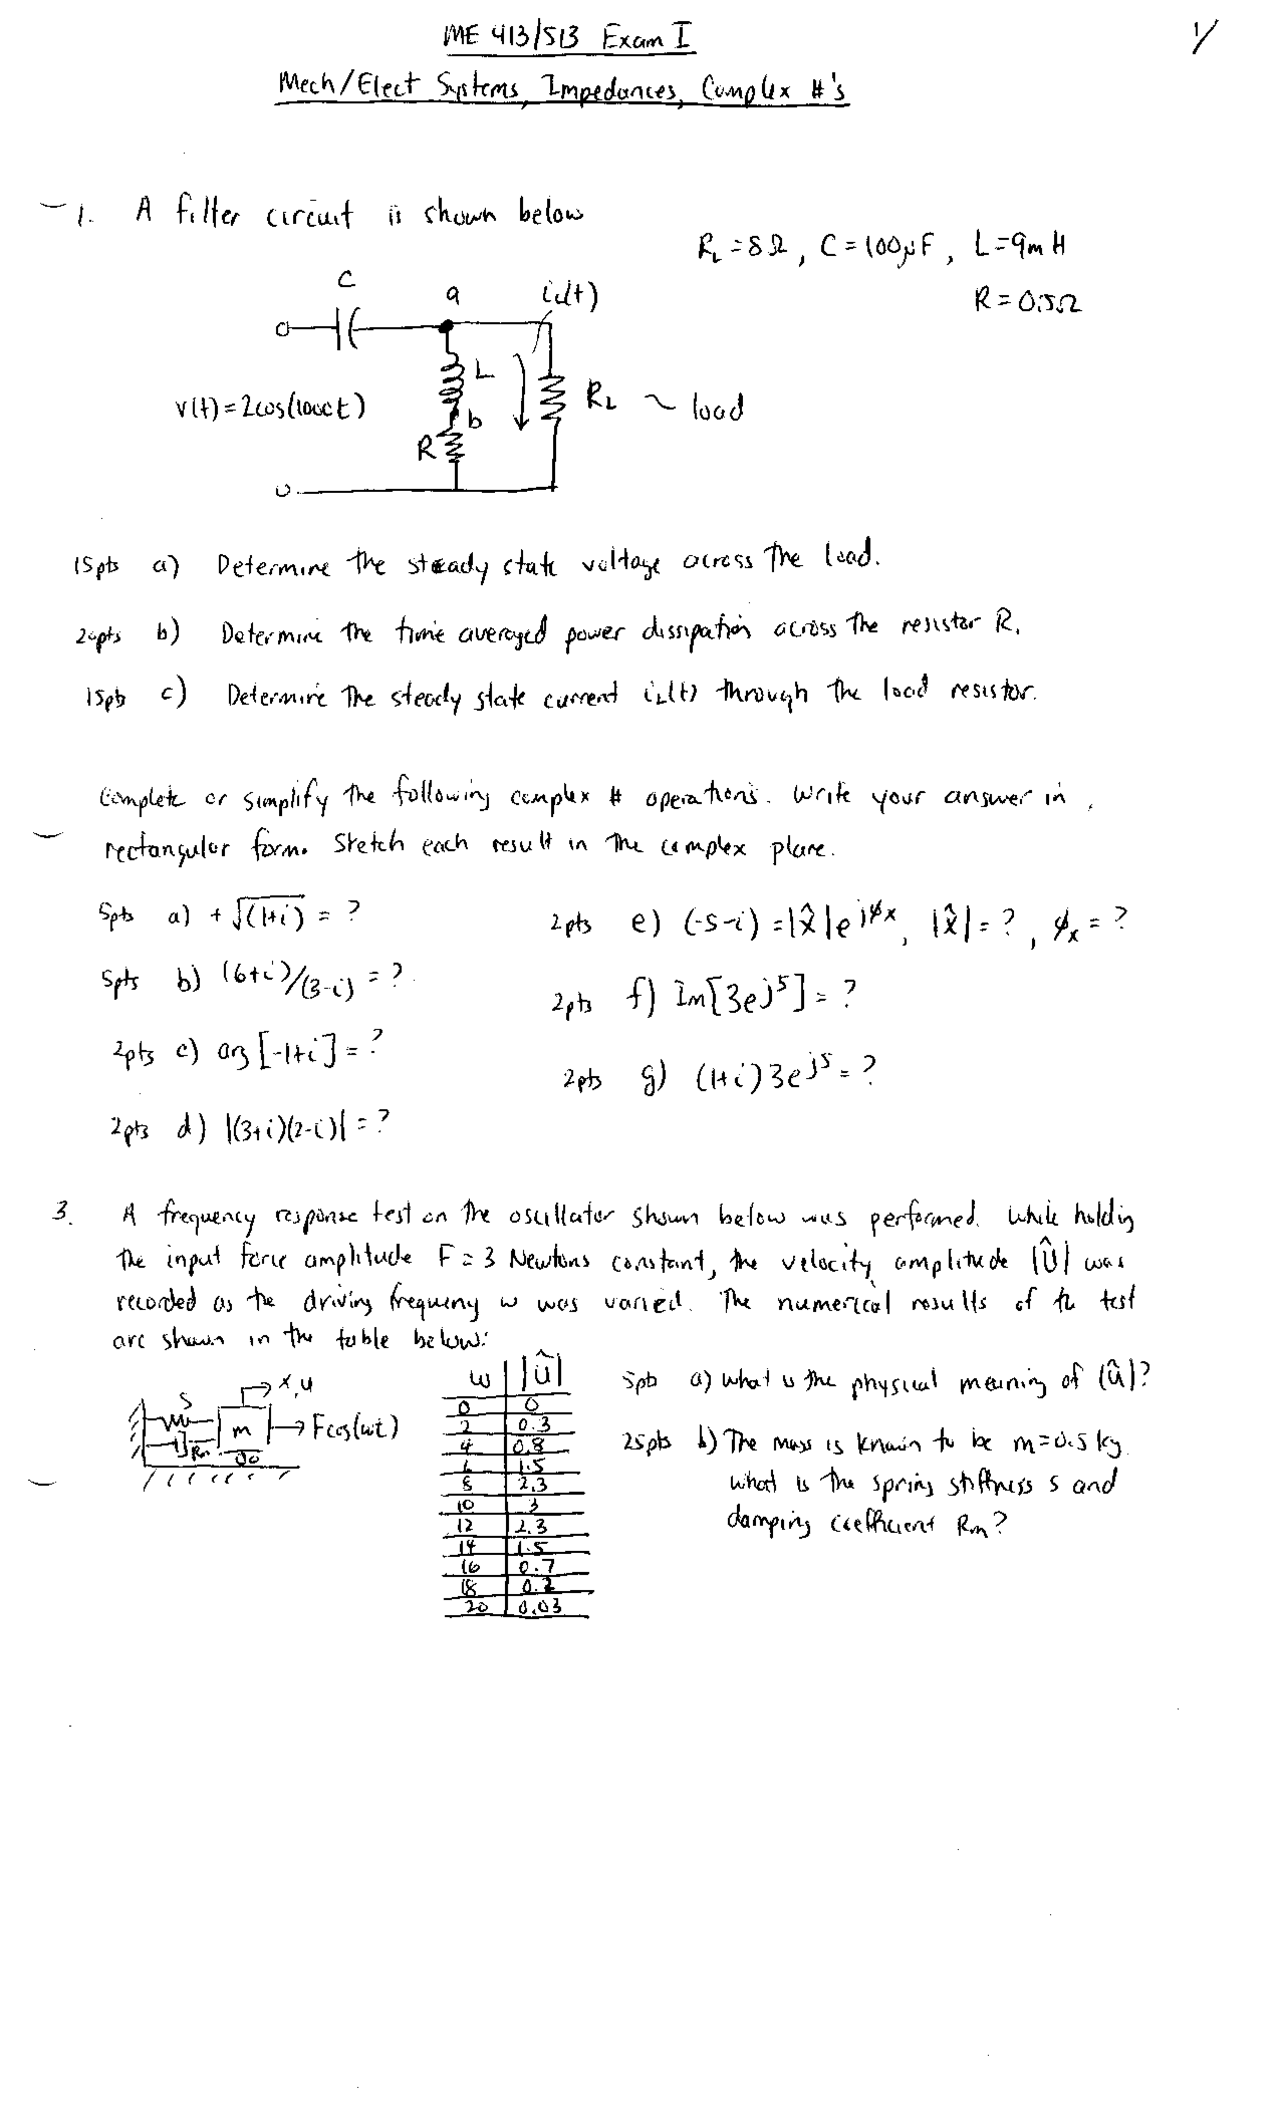 ME 413/513 Exam I
1/
Mech/Elect Systems, Impedances, Complex #'s
1. A filter circuit is shown below
R_L = 8Ω, C = 100μF, L = 9mH
R = 0.5Ω
C
a
i_L(t)
L
R_L ~ load
v(t) = 2cos(1000t)
b
R
15pts a) Determine the steady state voltage across the load.
20pts b) Determine the time averaged power dissipation across the resistor R.
15pts c) Determine the steady state current i_L(t) through the load resistor.
Complete or simplify the following complex # operations. Write your answer in
rectangular form. Sketch each result in the complex plane.
5pts a) +√(1+i) = ?
5pts b) (6+i)/(3-i) = ?
2pts c) arg[-1+i] = ?
2pts d) |(3+i)(2-i)| = ?
2pts e) (-5-i) = |x̂|e^{jφx}, |x̂| = ?, φx = ?
2pts f) Im[3e^{j5}] = ?
2pts g) (1+i)3e^{j5} = ?
3. A frequency response test on the oscillator shown below was performed. While holding
the input force amplitude F = 3 Newtons constant, the velocity amplitude |Û| was
recorded as the driving frequency w was varied. The numerical results of the test
are shown in the table below:
x,u
S
m
Fcos(wt)
Rm
w |û|
0 0
2 0.3
4 0.8
6 1.5
8 2.3
10 3
12 2.3
14 1.5
16 0.7
18 0.2
20 0.03
5pts a) what is the physical meaning of |û|?
25pts b) The mass is known to be m=0.5 kg.
what is the spring stiffness s and
damping coefficient Rm?